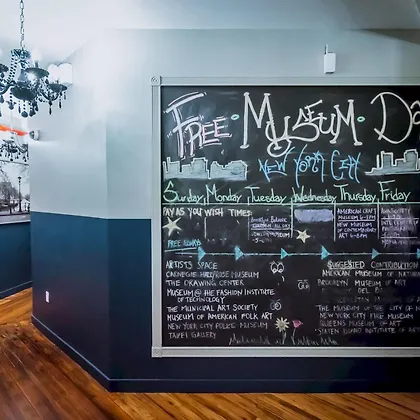 FREE · MUSEUM · Da
NEW YORK CITY
Sunday Monday Tuesday Wednesday Thursday Friday
PAY AS YOU WISH TIMES
BOTANIC
GARDEN ALL DAY
AMERICAN CRAFT
MUSEUM 6-8PM
NEW MUSEUM
OF CONTEMPORARY
ART 6-8PM
ASIA SOCIETY
FREE HOURS
ARTISTS SPACE
CARNEGIE HALL/ROSE MUSEUM
THE DRAWING CENTER
MUSEUM @ THE FASHION INSTITUTE
OF TECHNOLOGY
THE MUNICIPAL ART SOCIETY
MUSEUM OF AMERICAN FOLK ART
NEW YORK CITY POLICE MUSEUM
TAIPEI GALLERY
SUGGESTED CONTRIBUTION
AMERICAN MUSEUM OF NATURA
BROOKLYN MUSEUM OF ART
DEL B
THE MUSEUM OF THE CITY OF N
NEW YORK CITY FIRE MUSEUM
QUEENS MUSEUM OF ART
STATEN ISLAND INSTITUTE OF ART